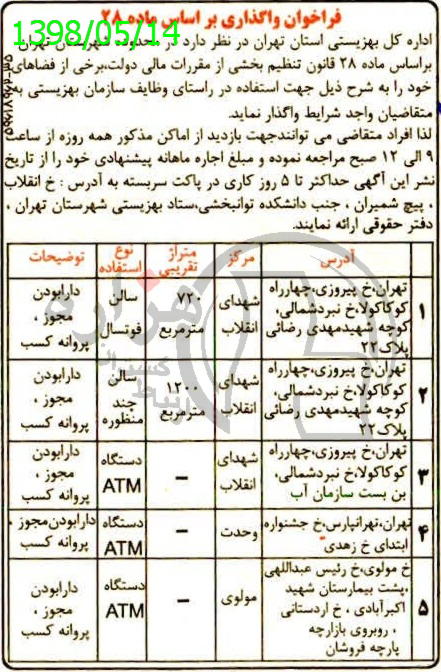 فراخوان واگذاری بر اساس ماده ۲۸
1398/05/14
اداره کل بهزیستی استان تهران در نظر دارد در محدوده شهرستان تهران
براساس ماده ۲۸ قانون تنظیم بخشی از مقررات مالی دولت،برخی از فضاهای
خود را به شرح ذیل جهت استفاده در راستای وظایف سازمان بهزیستی به
متقاضیان واجد شرایط واگذار نماید.
لذا افراد متقاضی می توانندجهت بازدید از اماکن مذکور همه روزه از ساعت
۹ الی ۱۲ صبح مراجعه نموده و مبلغ اجاره ماهانه پیشنهادی خود را از تاریخ
نشر این آگهی حداکثر تا ۵ روز کاری در پاکت سربسته به آدرس : خ انقلاب
، پیچ شمیران ، جنب دانشکده توانبخشی،ستاد بهزیستی شهرستان تهران ،
دفتر حقوقی ارائه نمایند.
آدرس مرکز متراژ تقریبی نوع استفاده توضیحات
۱ تهران،خ پیروزی،چهارراه شهدای ۷۲۰ سالن دارابودن
کوکاکولا،خ نبردشمالی، انقلاب مترمربع فوتسال مجوز ،
کوچه شهیدمهدی رضائی پروانه کسب
پلاک۲۲
۲ تهران،خ پیروزی،چهارراه شهدای ۱۲۰۰ سالن دارابودن
کوکاکولا،خ نبردشمالی، انقلاب مترمربع چند مجوز ،
کوچه شهیدمهدی رضائی منظوره پروانه کسب
پلاک۲۲
۳ تهران،خ پیروزی،چهارراه شهدای – دستگاه دارابودن
کوکاکولا،خ نبردشمالی، انقلاب ATM مجوز ،
بن بست سازمان آب پروانه کسب
۴ تهران،تهرانپارس،خ جشنواره وحدت – دستگاه دارابودن مجوز ،
ابتدای خ زهدی ATM پروانه کسب
۵ خ مولوی،خ رئیس عبداللهی مولوی – دستگاه دارابودن
،پشت بیمارستان شهید ATM مجوز ،
اکبرآبادی ، خ اردستانی پروانه کسب
، روبروی بازارچه
پارچه فروشان
هزاره